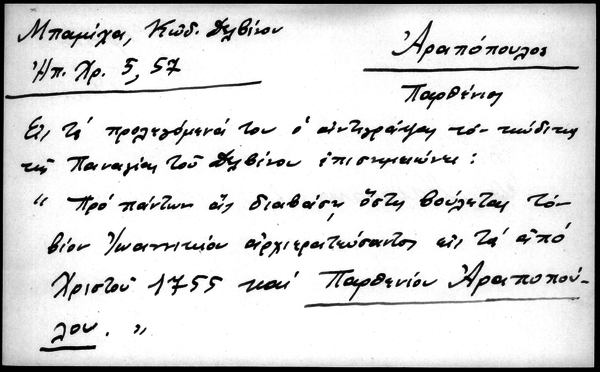 Μπαμίχα, Κώδ. Δελβίνου
Ἠπ. Χρ. 5, 57
Ἀραπόπουλος
Παρθένιος
Εἰς τά προλεγόμενά του ὁ ἀντιγράψας τόν κώδικα
τῆς Παναγίας τοῦ Δελβίνου ἐπισημειώνει:
" Πρό πάντων ἄς διαβάσῃ ὅστις βούλεται τόν
βίον Ἰωαννικίου ἀρχιερατεύσαντος εἰς τά ἀπό
Χριστοῦ 1755 καί Παρθενίου Ἀραποπού-
λου. "